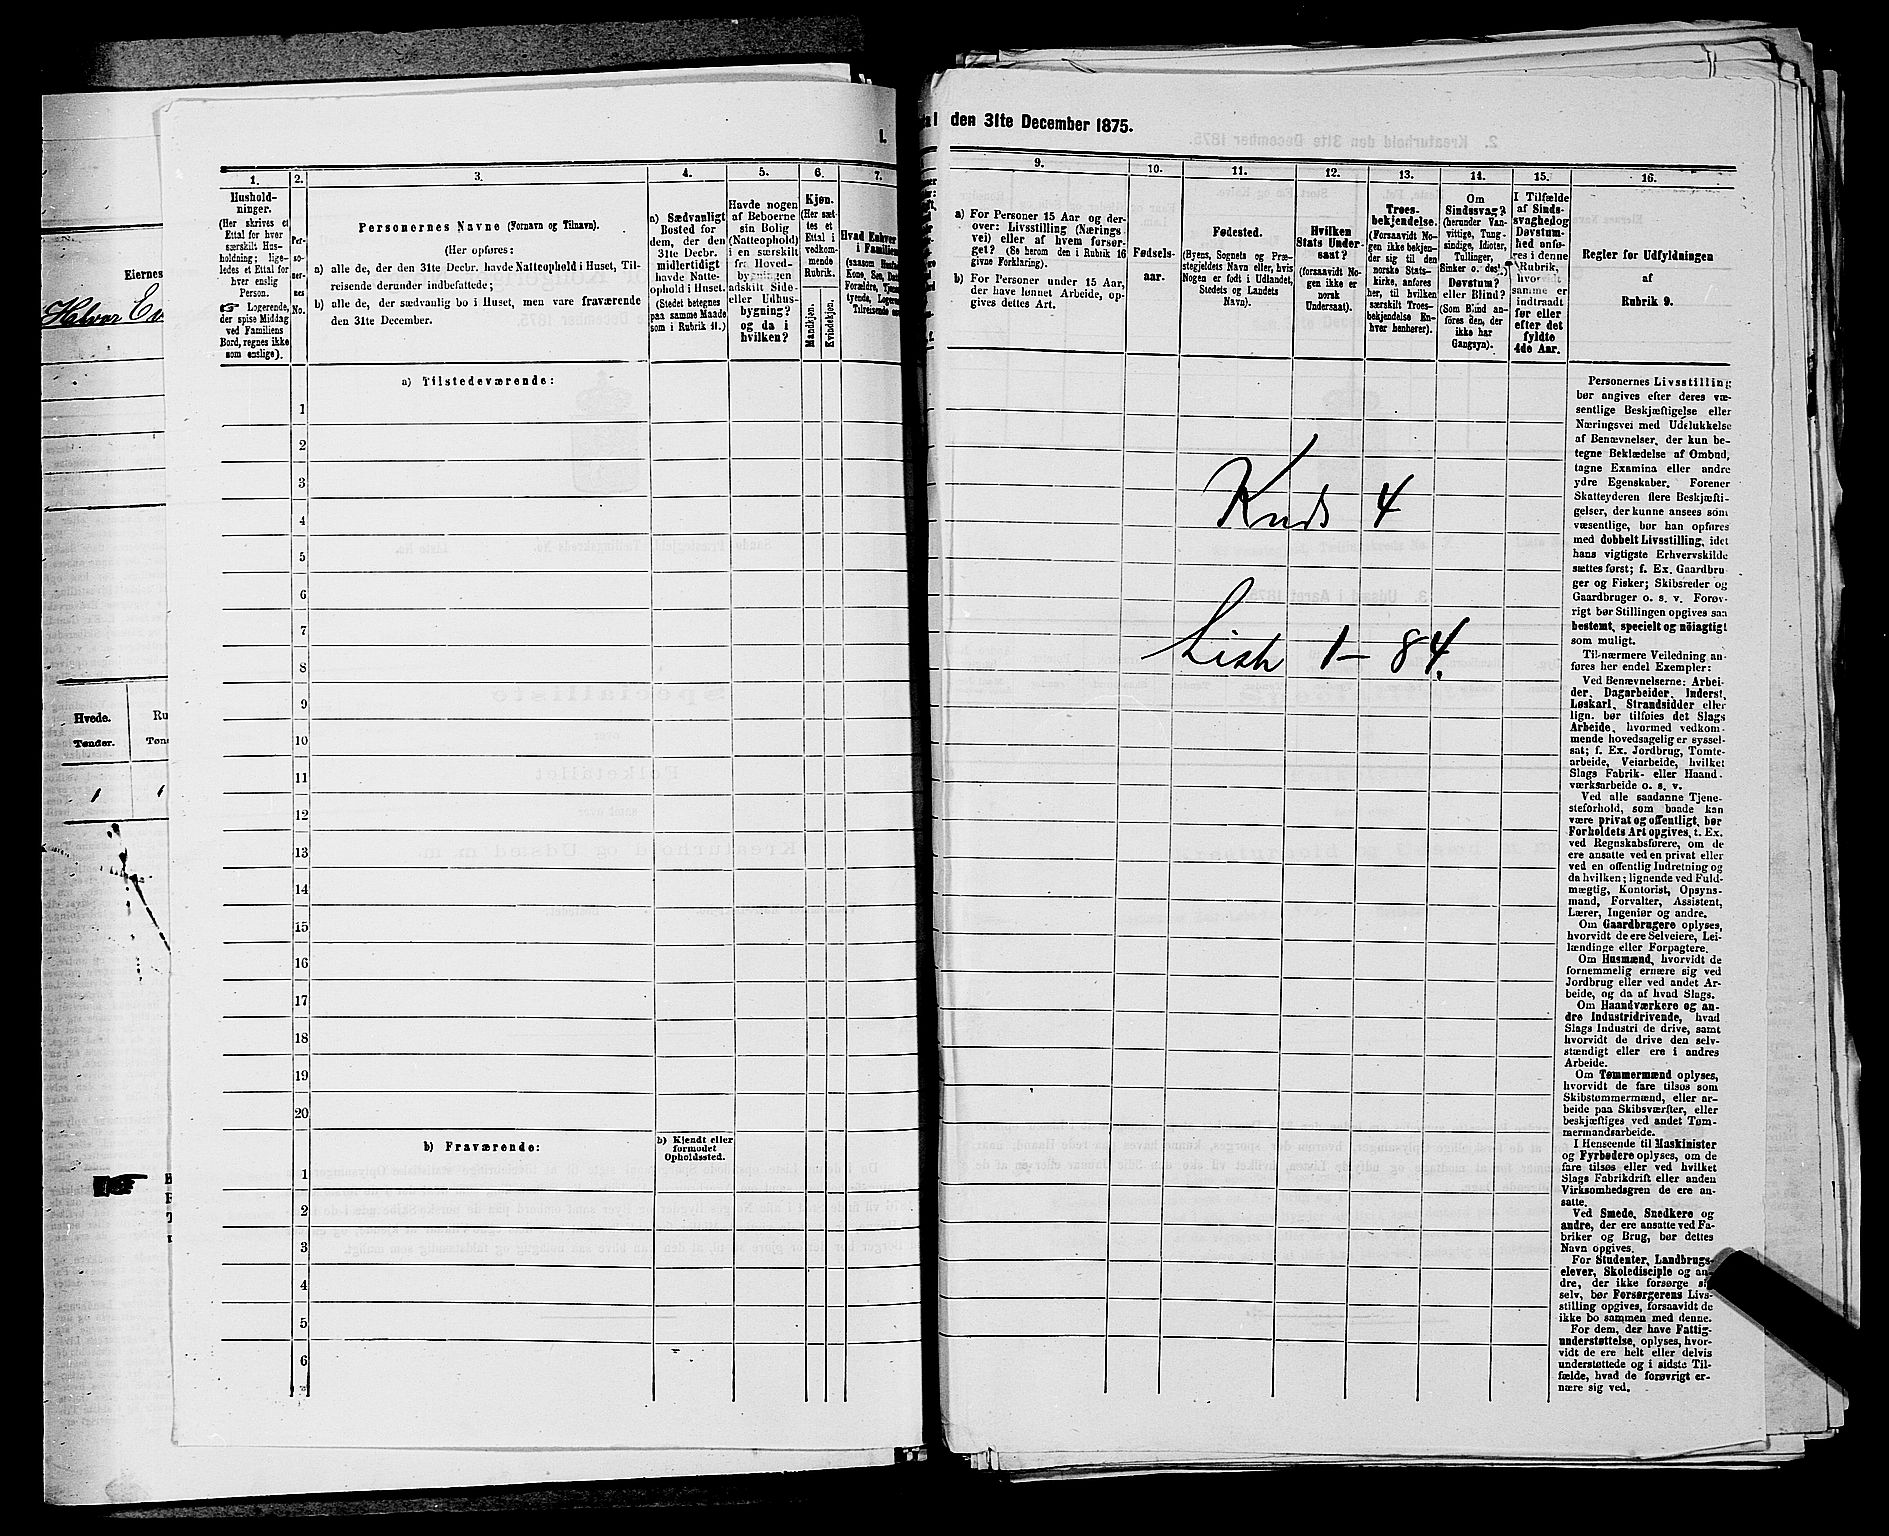 Eiernes
Halvor
Hvede.
Ru
Tønder.
Tøn
1
1
1.
tal den 31te December 1875.
1.
Hushold-
ninger.
(Her skrives et
Ettal for hver
særskilt Hus-
holdning; lige-
ledes et Ettal for
hver enslig
Person.
☞ Logerende,
der spise Middag
ved Familiens
Bord, regnes ikke
som enslige).
2.
Per-
so-
ner-
nes
No.
3.
Personernes Navne (Fornavn og Tilnavn).
(Her opføres:
a) alle de, der den 31te Decbr. havde Natteophold i Huset, Til-
reisende derunder indbefattede;
b) alle de, der sædvanlig bo i Huset, men vare fraværende
den 31te December.
4.
a) Sædvanligt
Bosted for
dem, der den
31te Decbr.
midlertidigt
havde Natte-
ophold i Huset.
(Stedet betegnes
paa samme Maade
som i Rubrik 11.)
5.
Havde nogen
af Beboerne
sin Bolig
(Natteophold)
i en særskilt
fra Hoved-
bygningen
adskilt Side-
eller Udhus-
bygning?
og da i
hvilken?
6.
Kjøn.
(Her sæt-
tes et
Ettal i
vedkom-
mende
Rubrik.
Mandkjøn.
Kvindekjøn.
7.
Hvad Enhver
i Familien
(saasom
Kone, Søn,
Forældre,
tyende,
Tilreisende
9.
a) For Personer 15 Aar og der-
over: Livsstilling (Nærings
vei) eller af hvem forsør-
get? (Se herom den i Rubrik 16
givne Forklaring).
b) For Personer under 15 Aar,
der have lønnet Arbeide, op-
gives dettes Art.
10.
Fødsels-
aar.
11.
Fødested.
(Byens, Sognets og Præ-
stegjeldets Navn eller, hvis
Nogen er født i Udlandet,
Stedets og Landets
Navn).
12.
Hvilken
Stats Under-
saat?
(forsaavidt No-
gen ikke er
norsk
Undersaat).
13.
Troes-
bekjendelse.
(Forsaavidt No-
gen ikke bekjen-
der sig til den
norske Stats-
kirke, anføres
her, til hvilken
særskilt Troes-
bekjendelse En-
hver henhører).
14.
Om
Sindssvag?
(herunder Van-
vittige, Tung-
sindige, Idioter,
Tullinger,
Sinker o. desl.)
Døvstum?
eller Blind?
(Som Blind an-
føres den, der
ikke har
Gangsyn).
15.
I Tilfælde
af Sinds-
svaghed og
Døvstum-
hed anfø-
res i denne
Rubrik,
hvorvidt
samme er
indtraadt
før eller
efter det
fyldte
4de Aar.
16.
Regler for Udfyldningen
af
Rubrik 9.
a) Tilstedeværende:
1
2
3
4
5
6
7
8
9
10
11
12
13
14
15
16
17
18
19
20
b) Fraværende:
b) Kjendt eller
formodet
Opholdssted.
1
2
3
4
5
6
4
1 – 84.
Personernes Livsstilling
bør angives efter deres væ-
sentlige Beskjæftigelse eller
Næringsvei med Udelukkelse
af Benævnelser, der kun be-
tegne Beklædelse af Ombud,
tagne Examina eller andre
ydre Egenskaber. Forener
Skatteyderen flere Beskjæfti-
gelser, der kunne ansees som
væsentlige, bør han opføres
med dobbelt Livsstilling, idet
hans vigtigste Erhvervskilde
sættes først; f. Ex. Gaardbru-
ger og Fisker; Skibsreder og
Gaardbruger o. s. v. Forøv-
rigt bør Stillingen opgives saa
bestemt, specielt og nöiagtigt
som muligt.
Til nærmere Veiledning an-
føres her endel Exempler:
Ved Benævnelserne: Arbei-
der, Dagarbeider, Inderst,
Løskarl, Strandsidder eller
lign. bør tilføies det Slags
Arbeide, hvormed vedkom-
mende hovedsagelig er syssel-
sat; f. Ex. Jordbrug, Tomte-
arbeide, Veiarbeide, hvilket
Slags Fabrik- eller Haand-
værksarbeide o. s. v.
Ved alle saadanne Tjene-
steforhold, som baade kan
være privat og offentligt, bør
Forholdets Art opgives, t. Ex.
ved Regnskabsførere, om de
ere ansatte ved en privat eller
ved en offentlig Indretning og
da hvilken; lignende ved Fuld-
mægtig, Kontorist, Opsyns-
mand, Forvalter, Assistent,
Lærer, Ingeniør og andre.
Om Gaardbrugere oplyses,
hvorvidt de ere Selveiere, Lei-
lændinge eller Forpagtere.
Om Husmænd, hvorvidt de
fornemmelig ernære sig ved
Jordbrug eller ved andet Ar-
beide, og da af hvad Slags.
Om Haandværkere og an-
dre Industridrivende, hvad
Slags Industri de drive, samt
hvorvidt de drive den selv-
stændigt eller ere i andres
Arbeide.
Om Tømmermænd oplyses,
hvorvidt de fare tilsøs som
Skibstømmermænd, eller ar-
beide paa Skibsværfter, eller
beskjæftiges ved andet Tøm-
mermandsarbeide.
I Henseende til Maskinister
og Fyrbødere oplyses, om de
fare tilsøs eller ved hvilket
Slags Fabrikdrift eller anden
Virksomhedsgren de ere an-
satte.
Ved Smede, Snedkere og
andre, der ere ansatte ved Fa-
briker og Brug, bør dettes
Navn opgives.
For Studenter, Landbrugs-
elever, Skoledisciple og an-
dre, der ikke forsørge sig
selv, bør Forsørgerens Livs-
stilling opgives, forsaavidt de
ikke bo sammen med denne.
For dem, der have Fattig-
understøttelse, oplyses, hvor-
vidt de ere helt eller delvis
understøttede og i sidste Til-
fælde, hvad de forøvrigt er-
nære sig ved.